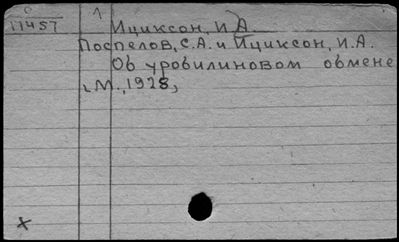 С
11457
1
Ициксон, И А.
Поспелов, С.А. и Ициксон, И.А.
Об уробилиновом обмене
М., 1928,
х